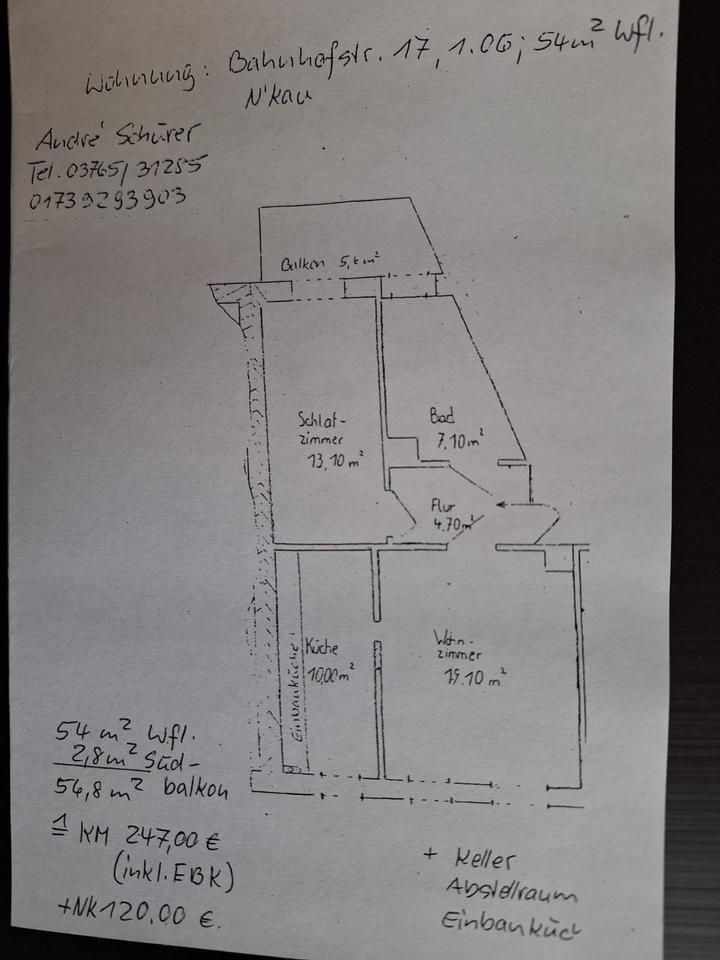 Wohnung: Bahnhofstr. 17, 1.OG; 54m² Wfl.
N'kau
André Schürer
Tel. 03765/31255
01739293903
Balkon 5,6 m²
Schlaf-
zimmer
13,10 m²
Bad
7.10 m²
Flur
4.70 m²
Küche
10,00 m²
Einbauküche
Wohn-
zimmer
19.10 m²
54 m² Wfl.
2,8 m² Süd-
56,8 m² balkon
≙ KM 247,00 €
(inkl. EBK)
+NK 120,00 €.
+ Keller
Abstellraum
Einbauküch